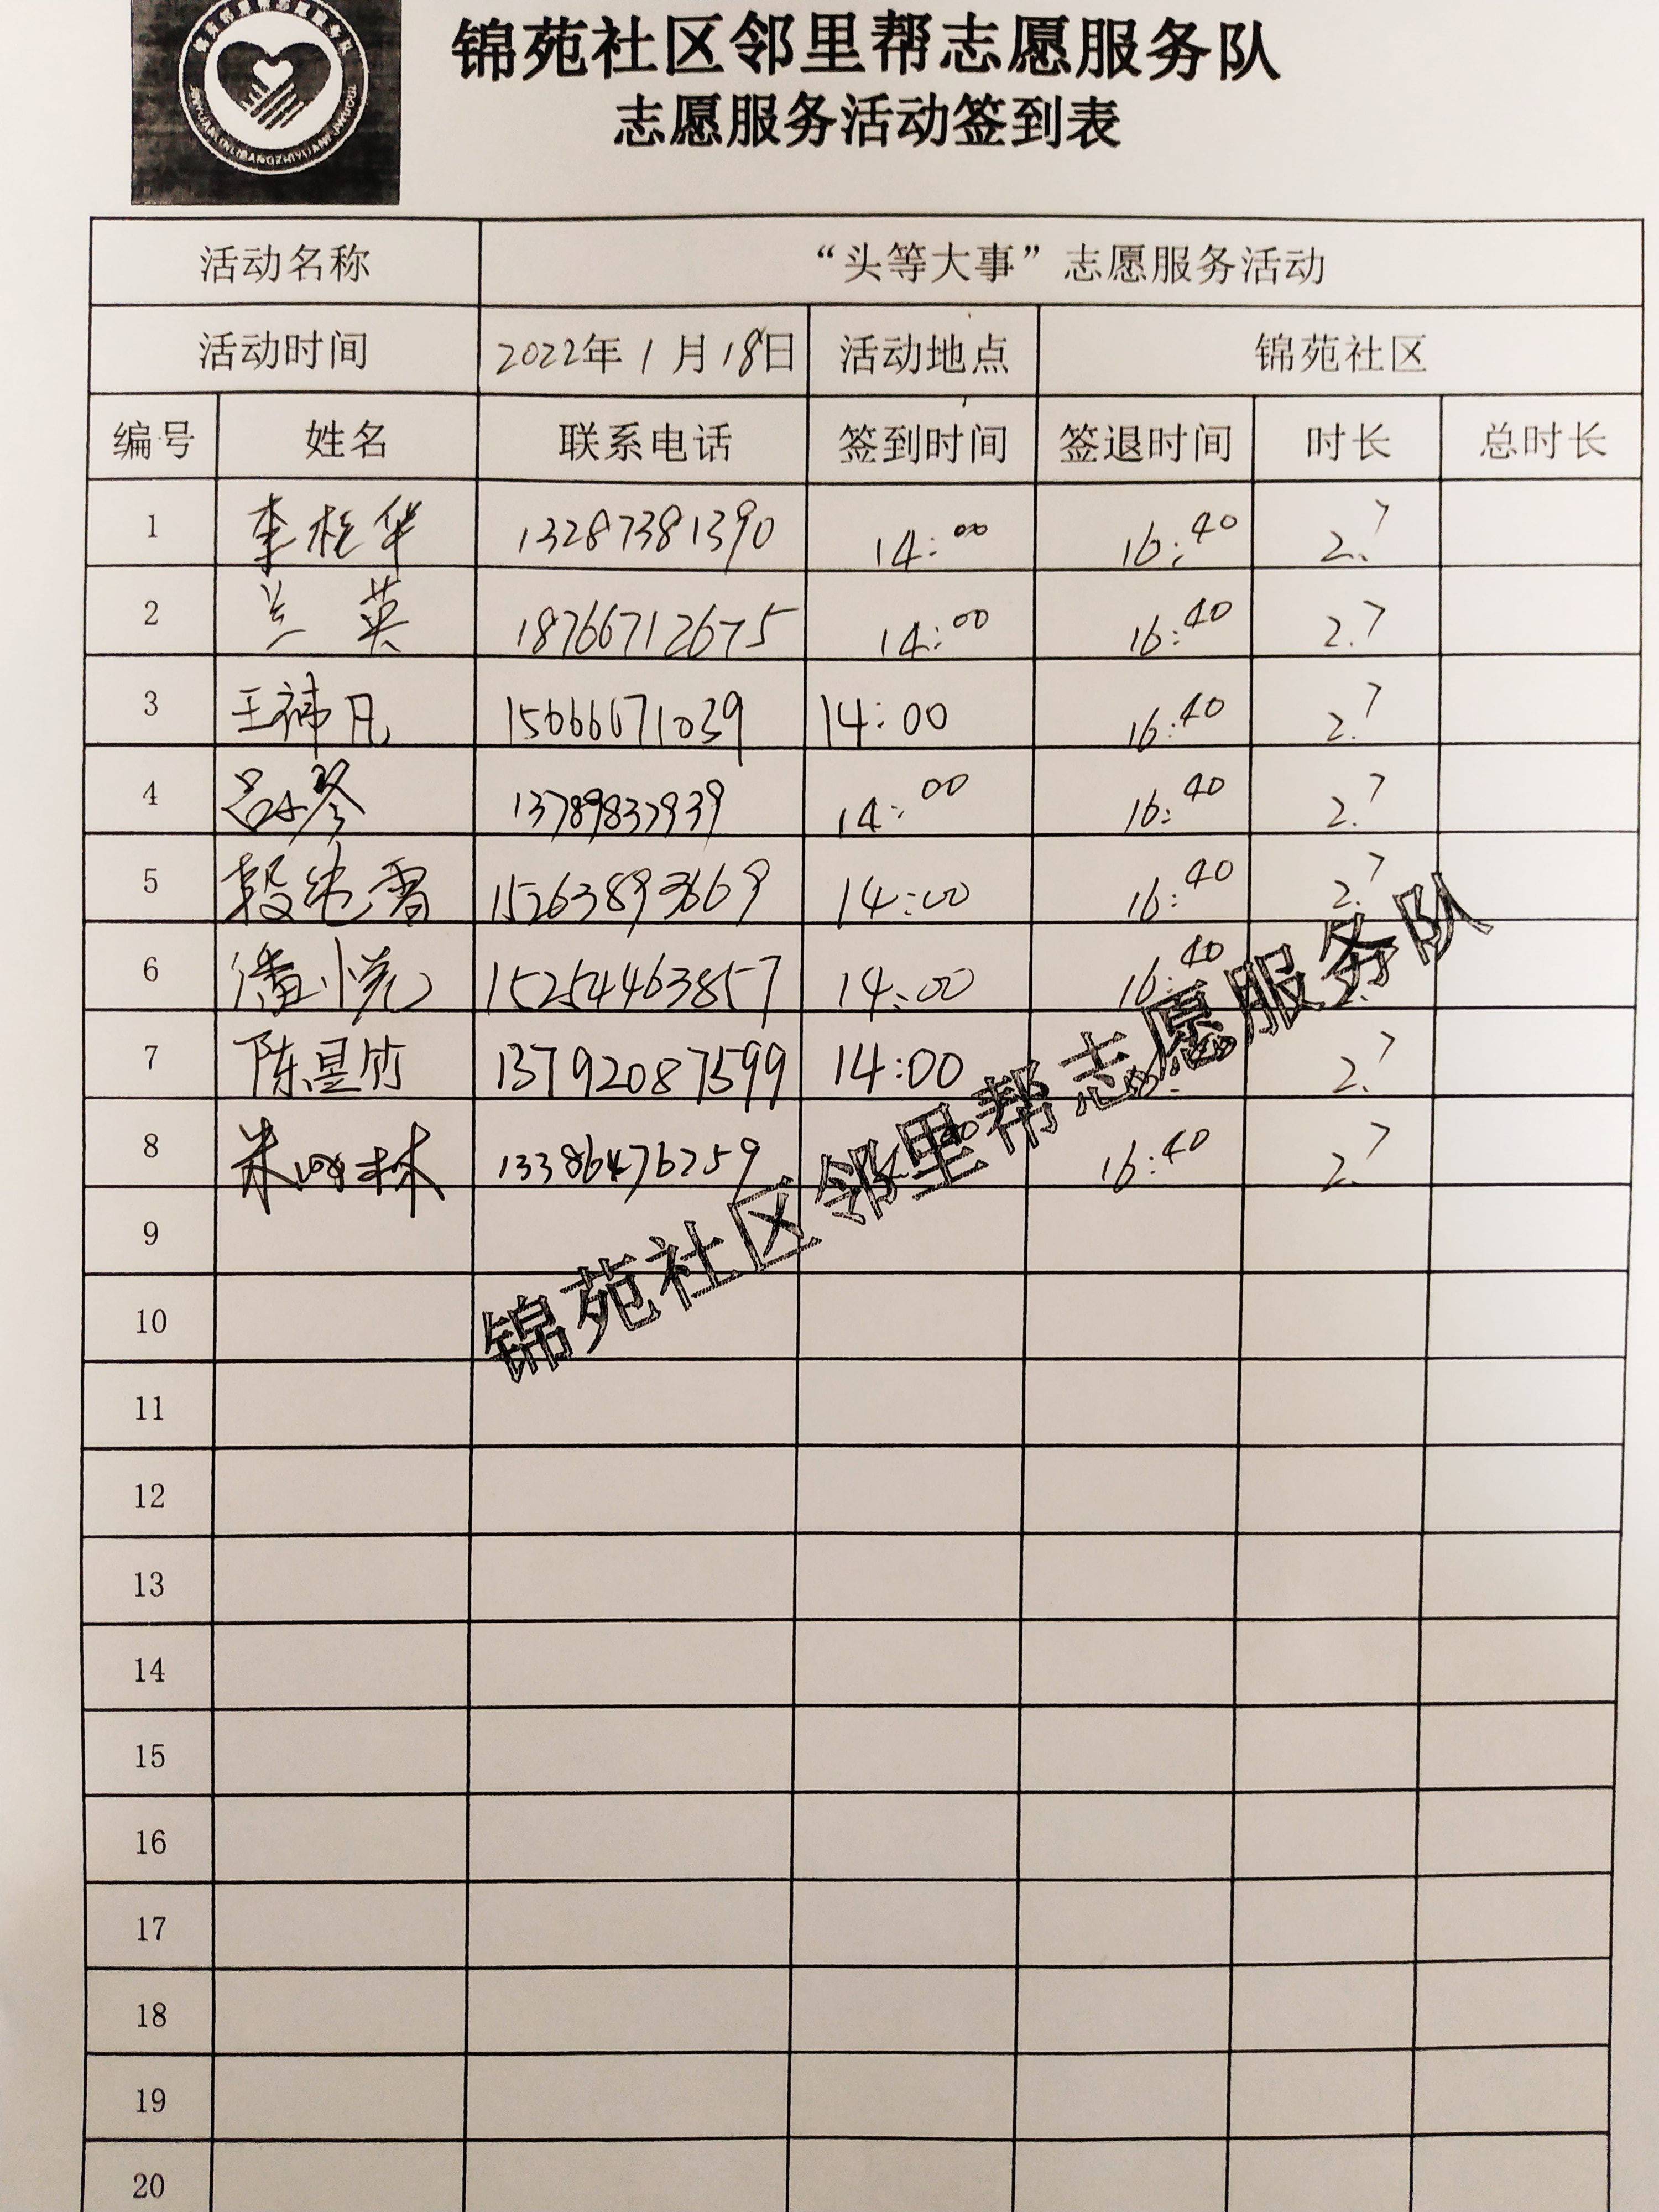 锦苑社区邻里帮志愿服务队
志愿服务活动签到表
活动名称 “头等大事”志愿服务活动
活动时间 2022年1月18日 活动地点 锦苑社区
编号 姓名 联系电话 签到时间 签退时间 时长 总时长
1 李桂华 13287381390 14:00 16:40 2.7
2 兰英 18766712675 14:00 16:40 2.7
3 王祎凡 15666671039 14:00 16:40 2.7
4 吕冬 13789832939 14:00 16:40 2.7
5 15263893669 14:00 16:40 2.7
6 潘悦 15254463857 14:00 16:40
7 陈星竹 13792087599 14:00 2.7
8 林 13386476259 16:40 2.7
锦苑社区邻里帮志愿服务队
9
10
11
12
13
14
15
16
17
18
19
20